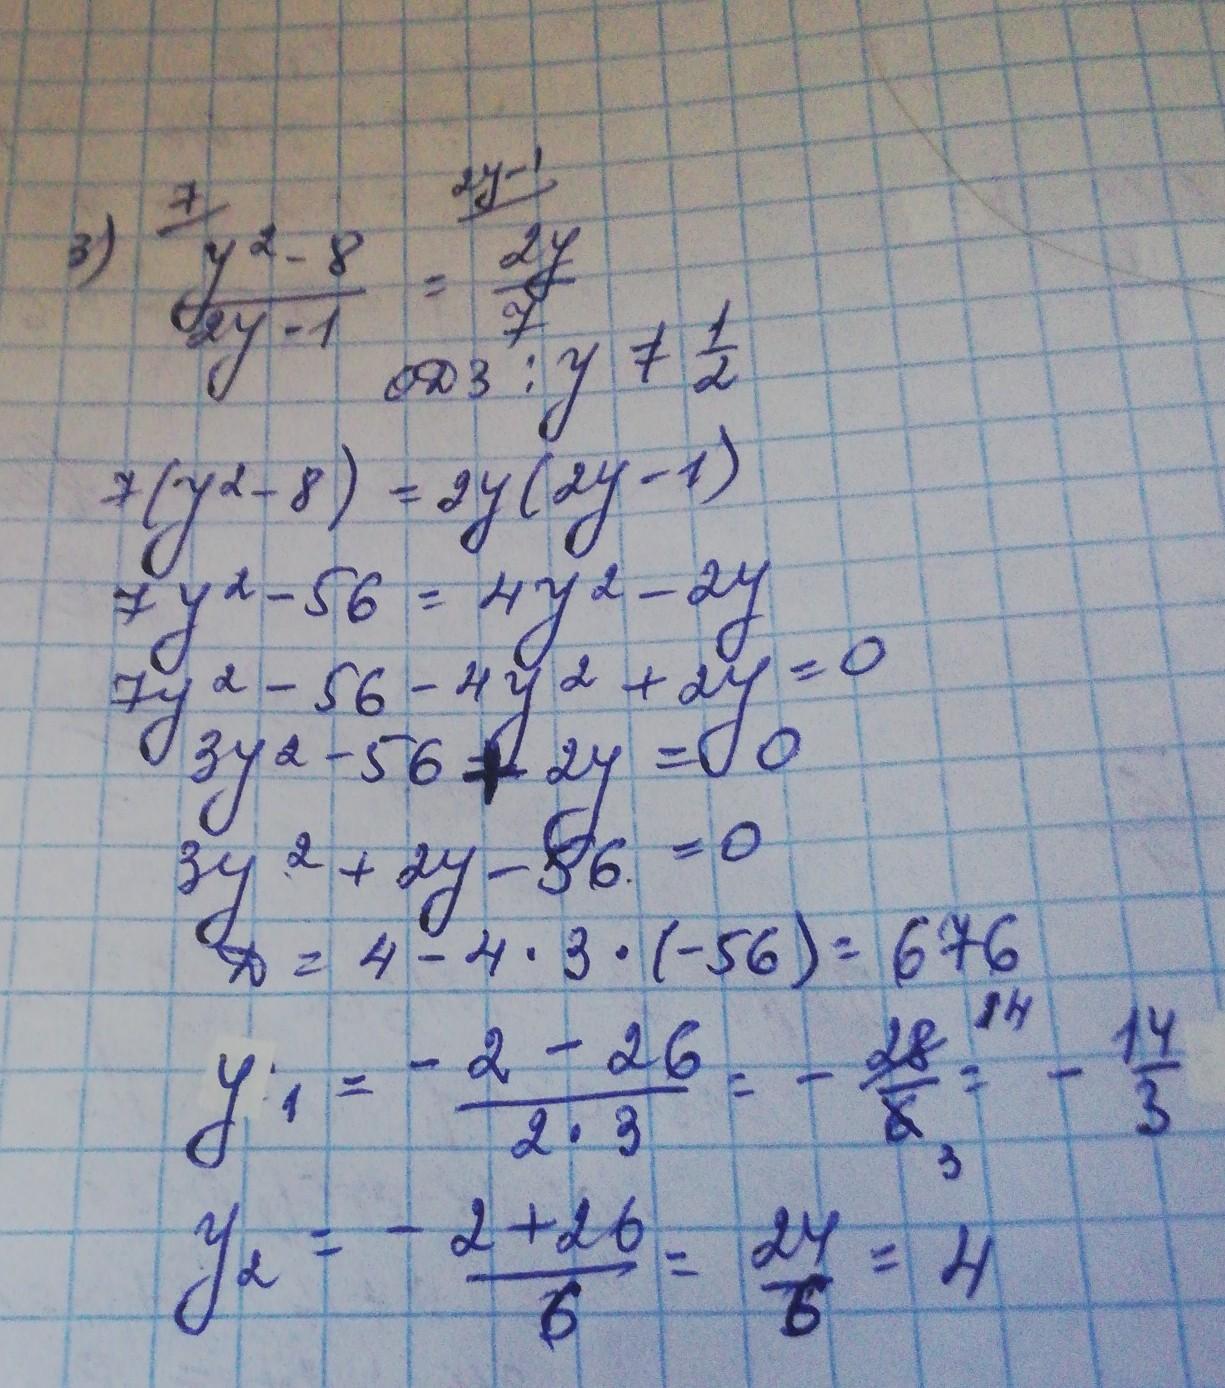 7 2y-1
3) y²-8/2y-1 = 2y/7
ОДЗ : y ≠ 1/2
7(y²-8) = 2y(2y-1)
7y²-56 = 4y²-2y
7y²-56-4y²+2y=0
3y²-56+2y=0
3y²+2y-56=0
D = 4-4·3·(-56)=676
y₁ = -2-26/2·3 = -28/6 14/3 = -14/3
y₂ = -2+26/6 = 24/6 = 4